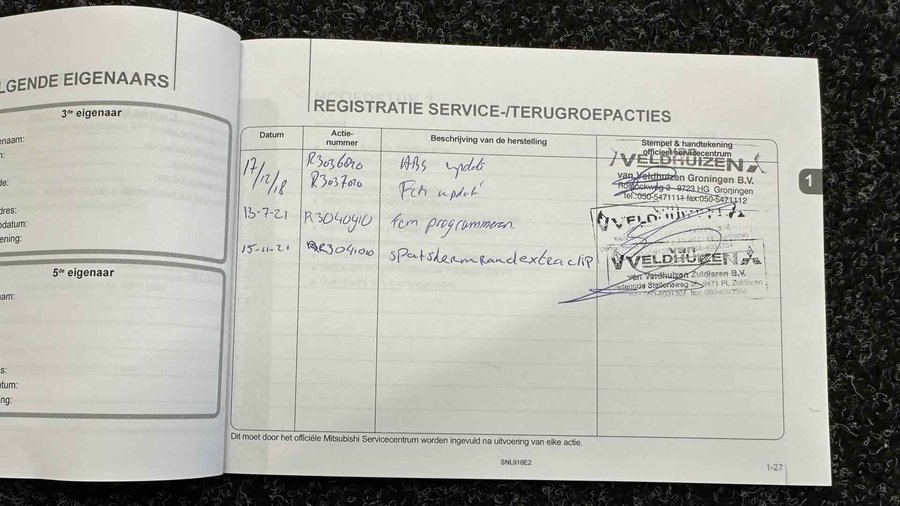 LGENDE EIGENAARS
3de eigenaar
enaam:
de:
dres:
odatum:
ening:
5de eigenaar
aam:
s:
atum:
ng:
REGISTRATIE SERVICE-/TERUGROEPACTIES
Datum
Actie-
nummer
Beschrijving van de herstelling
Stempel & handtekening
officieel servicecentrum
17/12/18
R3036020
ABS update
R3037010
Fcm update
VELDHUIZEN
van Veldhuizen Groningen B.V.
Rostockweg 2 9723 HG Groningen
tel.:050-5471111 fax:050-5471112
13-7-21
R3040910
Fcm programmeren
VELDHUIZEN
15-11-21
R3041010
spatschermrand extra clip
van
VELDHUIZEN
van Veldhuizen Zuidlaren B.V.
9471 PL Zuidlaren
1
Dit moet door het officiële Mitsubishi Servicecentrum worden ingevuld na uitvoering van elke actie.
SNL918E2
1-27